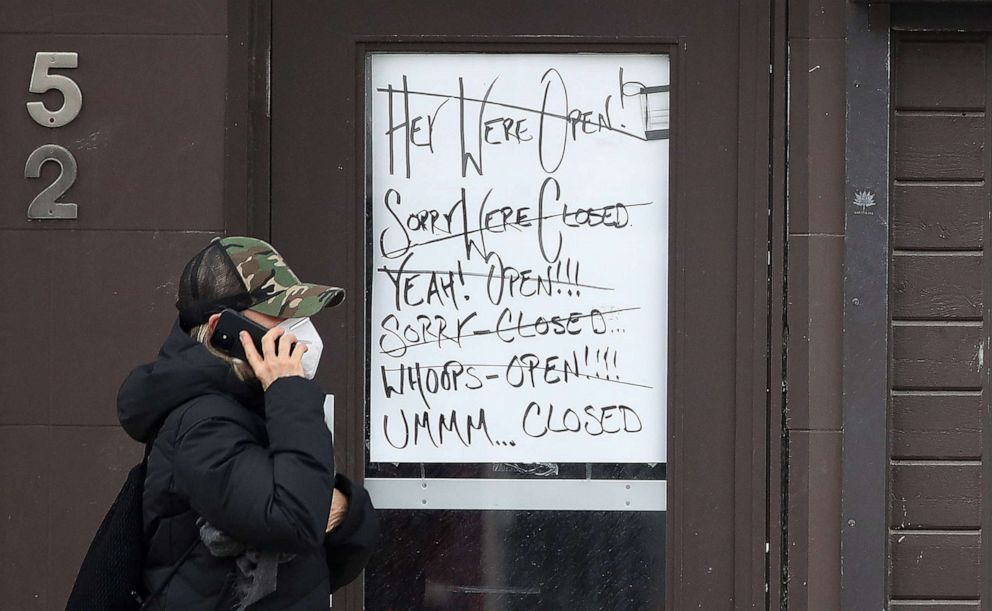 5
2
HEY WERE OPEN!
SORRY WERE CLOSED.
YEAH! OPEN!!!
SORRY-CLOSED...
WHOOPS-OPEN!!!!
UMMM... CLOSED